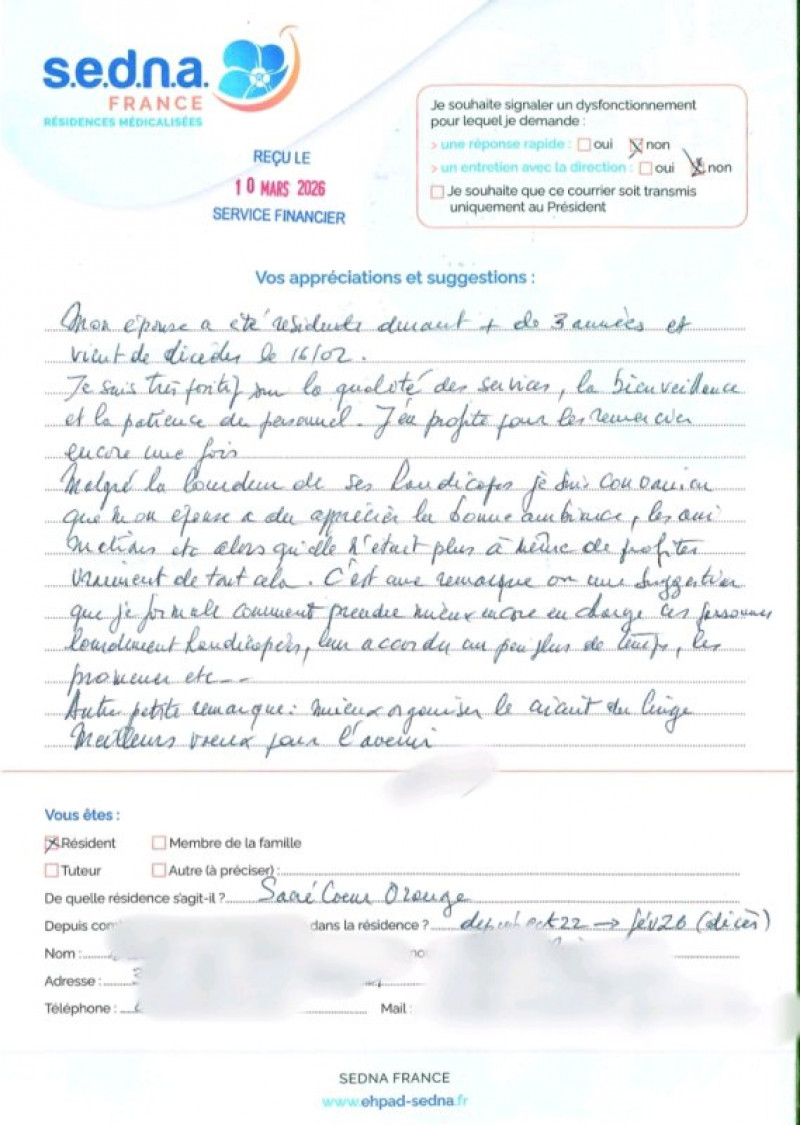 s.e.d.n.a.
FRANCE
RÉSIDENCES MÉDICALISÉES
REÇU LE
10 MARS 2026
SERVICE FINANCIER
Je souhaite signaler un dysfonctionnement
pour lequel je demande :
> une réponse rapide : oui non
> un entretien avec la direction : oui non
Je souhaite que ce courrier soit transmis
uniquement au Président
Vos appréciations et suggestions :
Mon épouse a été résidente durant + de 3 années et
vient de décéder le 16/02.
Je suis très positif sur la qualité des services, la bienveillance
et la patience du personnel. J'en profite pour les remercier
encore une fois
Malgré la lourdeur de ses handicaps je suis
que mon épouse a du apprécier la bonne ambiance, les ani
mations etc alors qu'elle n'était plus à même de profiter
vraiment de tout cela. C'est une remarque ou une suggestion
que je formule comment prendre mieux encore en charge ces personnes
lourdement handicapées, leur accorder un peu plus de temps, les
promener etc --
Autre petite remarque : mieux organiser le du linge
Meilleurs voeux pour l'avenir
Vous êtes :
Résident Membre de la famille
Tuteur Autre (à préciser) :
De quelle résidence s'agit-il ? Sacré Coeur Orange
Depuis dans la résidence ? oct 22 → fév 26 (décès)
Nom :
Adresse :
Téléphone : Mail :
SEDNA FRANCE
www.ehpad-sedna.fr